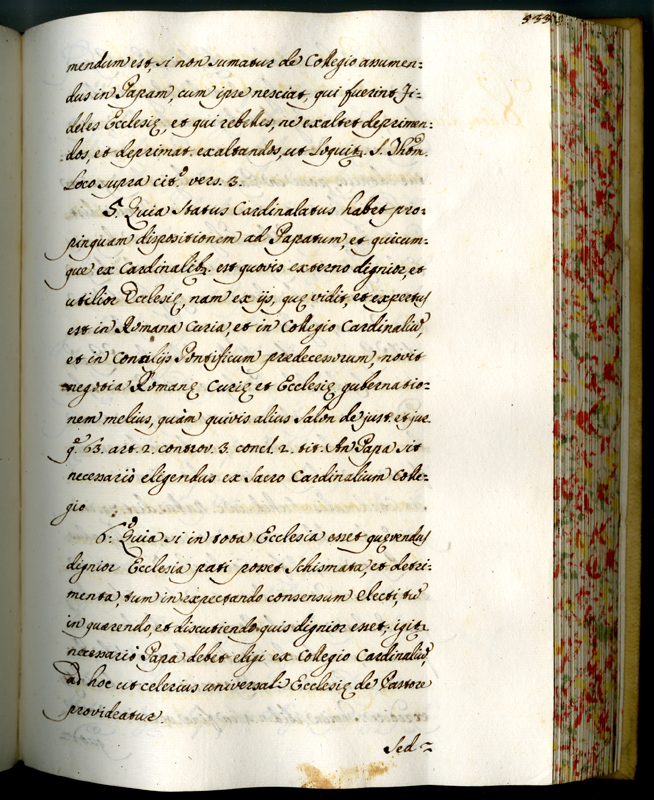 533
mendum est, si non sumatur de Collegio assumen:
dus in Papam, cum ipse nesciat, qui fuerint fi:
deles Ecclesię, et qui rebelles, ne exaltet deprimen:
dos, et deprimat exaltandos, ut loquit.r S. Thom.
loco supra cit.º vers. 3.
5. Quia status Cardinalatus habet pro:
pinquam dispositionem ad Papatum, et quicum:
que ex Cardinalib. est quovis externo dignior, et
utilior Ecclesię, nam ex ijs, quę vidit, et expertus
est in Romana Curia, et in Collegio Cardinaliũ,
et in Consilijs Pontificum predecessorum, novit
negotia Romanę Curię et Ecclesię gubernatio:
nem melius, quàm quivis alius Salon de just. et jur.
q. 63. art. 2. controv. 3. concl. 2. tit. An Papa sit
necessariò eligendus ex Sacro Cardinalium Colle:
gio
6. Quia si in tota Ecclesia esset querendus
dignior Ecclesia pati posset schismata, et detri:
menta, tum in expectando consensum electi, tũ
in quaerendo, et discutiendo quis dignior esset; igit.r
necessariò Papa debet eligi ex Collegio Cardinaliũ,
ad hoc ut celerius universali Ecclesię de Pastore
provideatur.
Sed